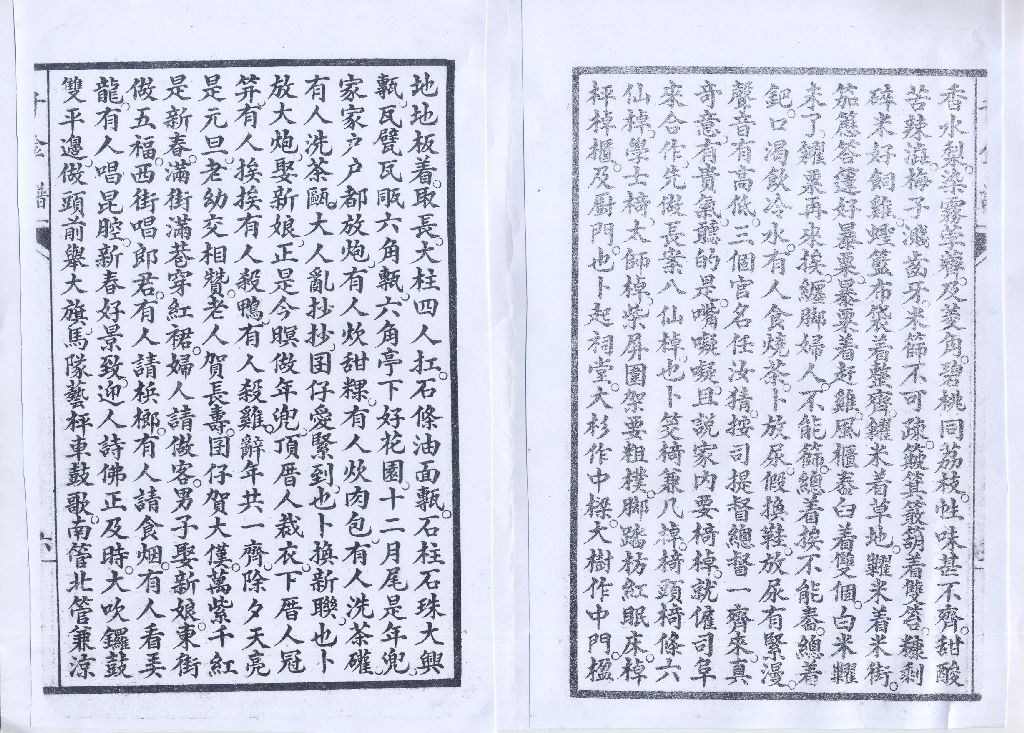 香水梨。染霧荸薺及菱角。碧桃同荔枝。性味甚不齊。甜酸
苦辣澁。梅子濺齒牙。米篩不可疎。簸箕簸葫着雙笞。糠剩
碎米好飼雞。蟶籃布袋着整齊。糶米着草地。糶米着米街。
笳藶笞籧好暴粟。暴粟着赶雞。風櫃舂臼着雙個。白米糶
來了。糶粟再來挨。纏脚婦人不能篩。總着挨。不能舂。總着
鈀。口渴飲冷水。有人食燒茶。卜放尿。假換鞋。放尿有緊漫。
聲音有高低。三個官名任汝猜。按司提督總督一齊來。真
奇意。有貴氣。聽的是嘴嚂嚂。且說家內要椅棹。就僱司阜
來合作。先做長案八仙棹。也卜筊椅兼几棹。椅頭椅條六
仙棹。學士椅。太師棹。柴屏圍架要粗樸。脚踏枋。紅眠床。棹
枰棹櫃及厨門。也卜起祠堂。大杉作中樑。大樹作中門楹
地。地板着取長。大柱四人扛。石條油面甎。石柱石珠大興
甎。瓦甓瓦厩六角甎。六角亭下好花園。十二月尾是年兜。
家家户户都放炮。有人炊甜粿。有人炊肉包。有人洗茶礶。
有人洗茶甌。大人亂抄抄。囝仔愛緊到。也卜換新聯。也卜
放大炮。娶新娘。正是今暝做年兜。頂厝人裁衣。下厝人冠
笄。有人挨挨。有人殺鴨。有人殺雞。辭年共一齊。除夕天亮
是元旦。老幼交相贊。老人賀長壽。囝仔賀大僕。萬紫千紅
是新春。滿街滿巷穿紅裙。婦人請做客。男子娶新娘。東街
做五福。西街唱郎君。有人請梹榔。有人請食烟。有人看美
龍。有人唱昆腔。新春好景致。迎人詩佛正及時。大吹鑼鼓
雙平邊。做頭前。舉大旗。馬隊藝枰車鼓歌。南管北管兼涼